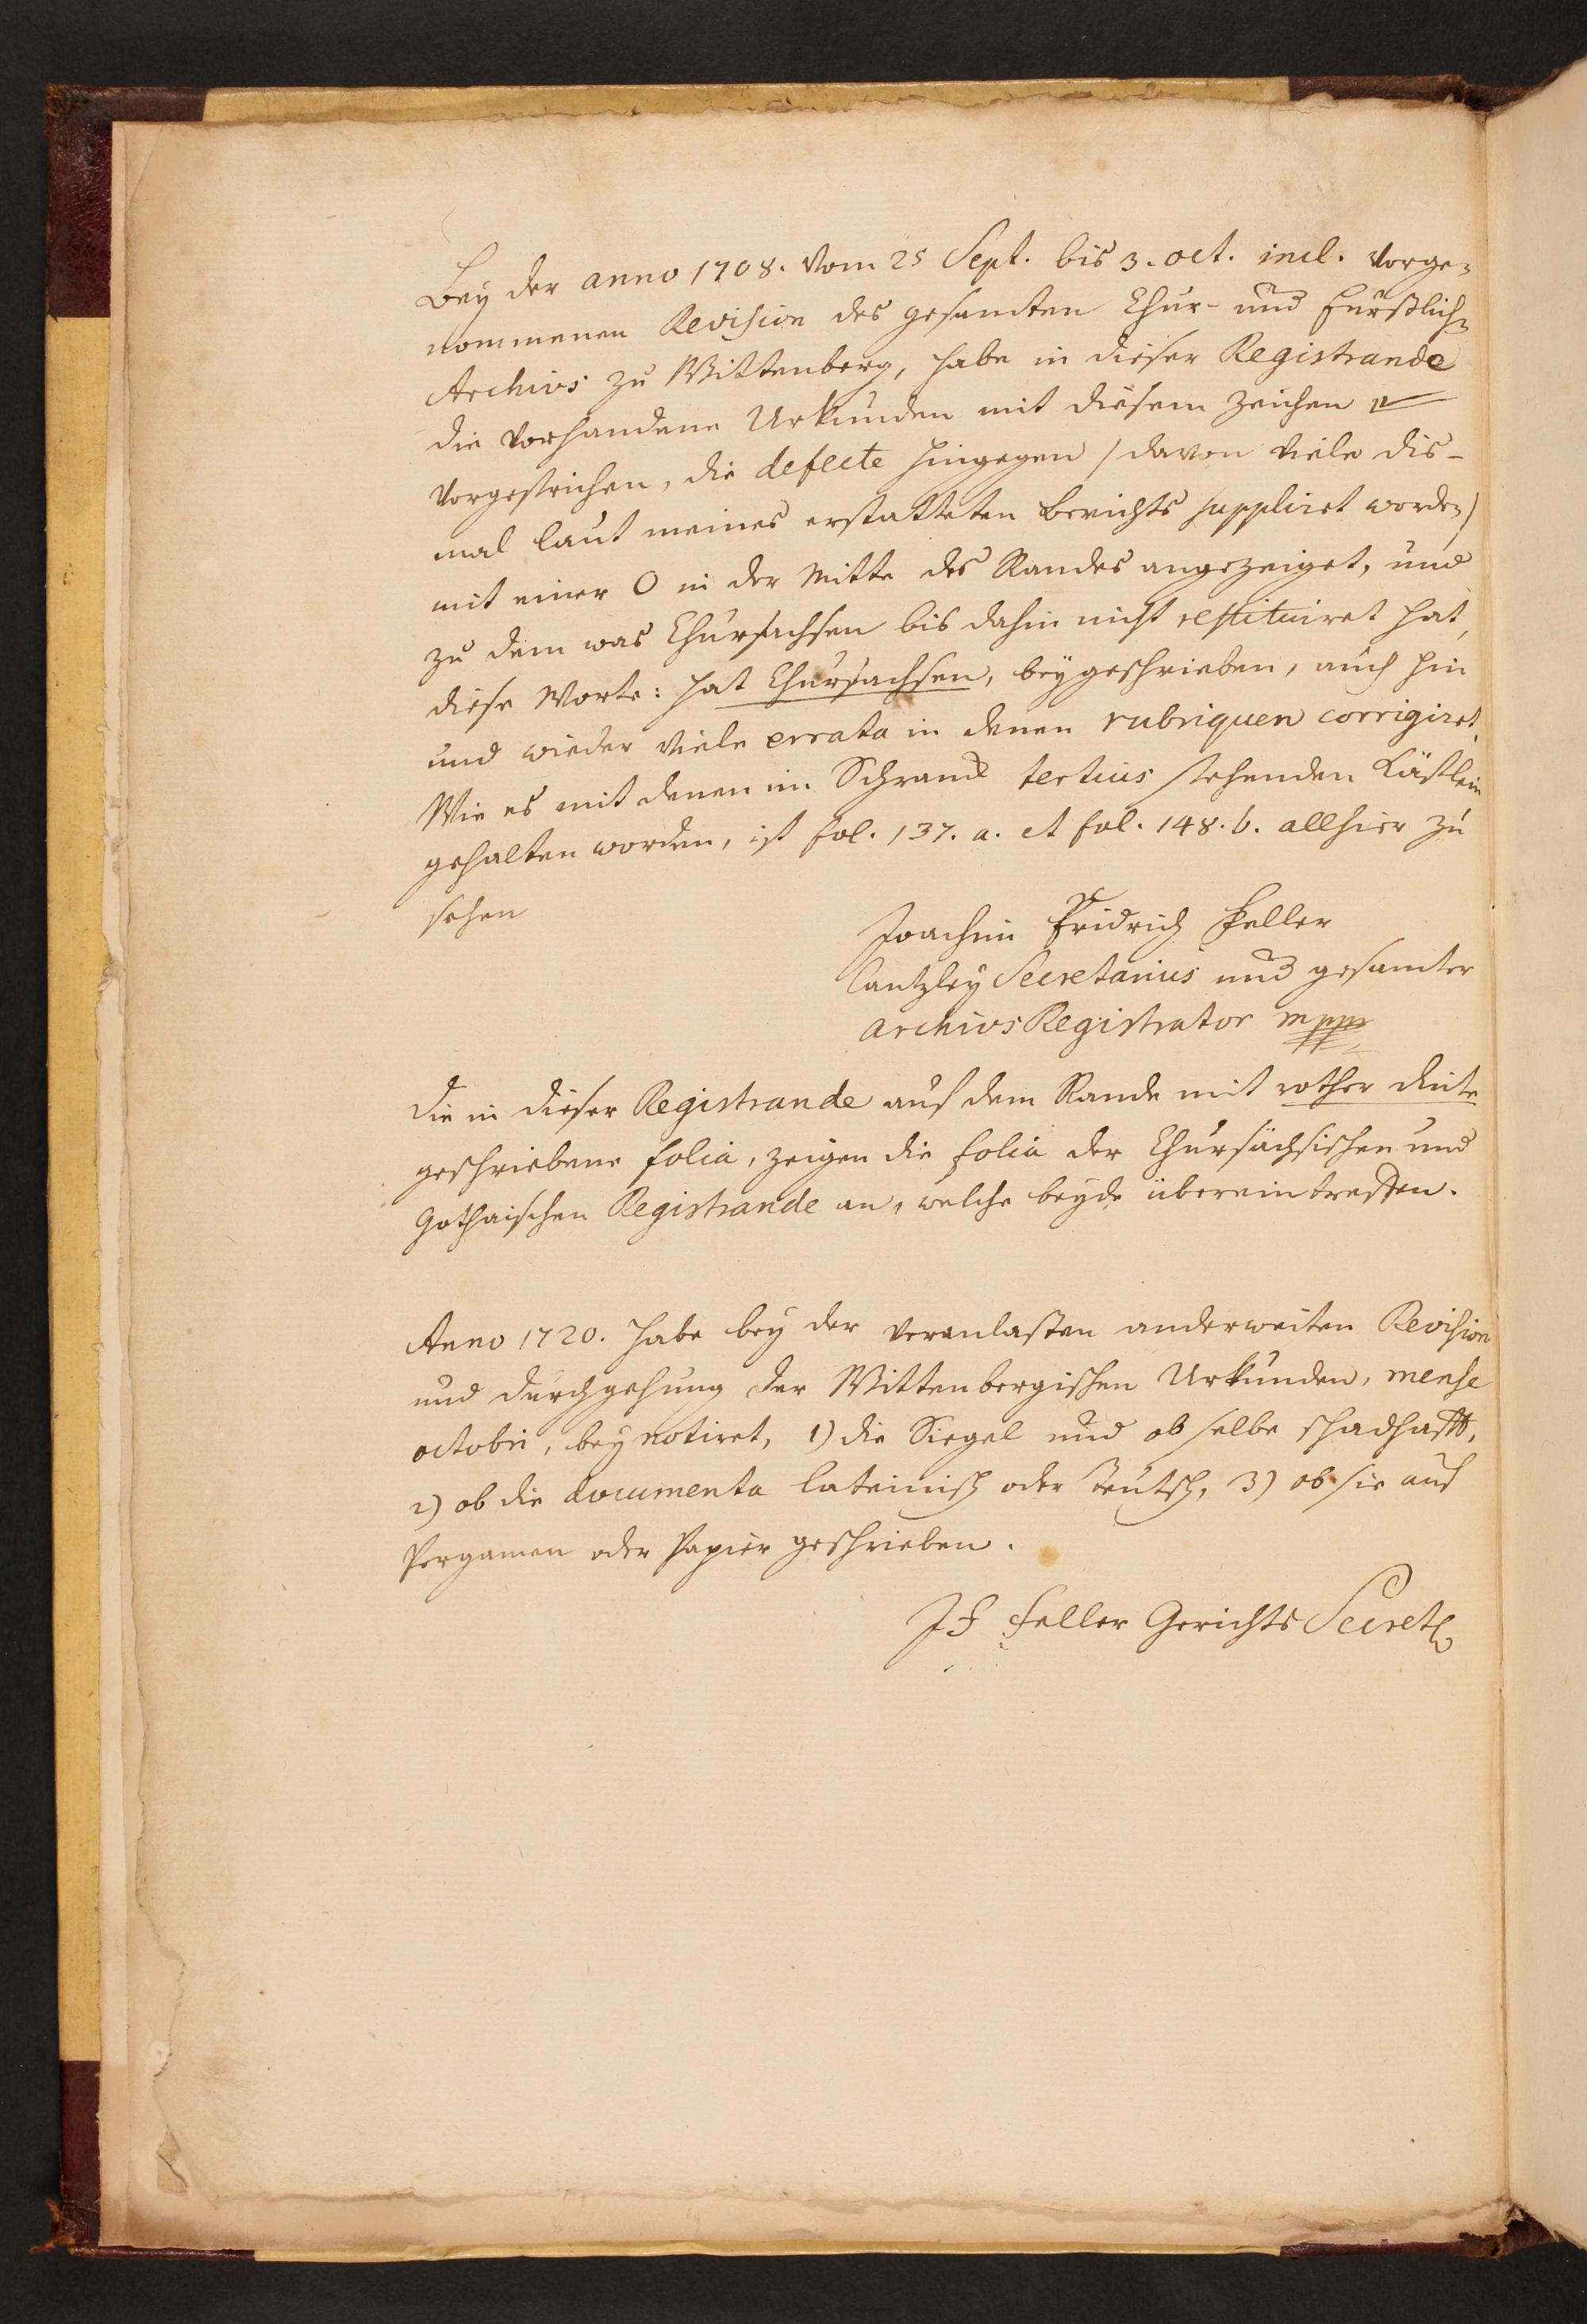 Bey der anno 1708. vom 25 Sept. bis 3. oct. incl. vorge-
nommenen Revision des gesamten Chur- und Fürstlich
Archivs zu Wittenberg, habe in dieser Registrande
die vorhandene Urkunden mit diesem Zeichen
vorgestrichen, die defecte hingegen /davon viele dis-
mal laut meines erstatteten Berichts suppliret worden/
mit einer O in der Mitte des Randes angezeiget, und
zu dem was Chursachsen bis dahin nicht restituiret hat,
diese Worte: hat Chursachsen, beygeschrieben, auch hin
und wieder viele errata in denen rubriquen corrigiret.
Wie es mit denen im Schranck tertius stehenden Kästlein
gehalten worden, ist fol. 137. a. et fol. 148. b. allhier zu
sehen
Joachim Fridrich Feller
Cantzley Secretarius und gesamter
Archivs Registrator mppr
Die in dieser Registrande auf dem Rande mit rother Dinte
geschriebene folia, zeigen die folia der Chursächsischen und
Gothaischen Registrande an, welche beyde übereintreffen.
Anno 1720. habe bey der veranlasten anderweiten Revision
und Durchgehung der Wittenbergischen Urkunden, mense
octobri, bey notiret, 1) die Siegel und ob selbe schadhafft,
2) ob die documenta lateinisch oder Teutsch, 3) ob sie auf
Pergamen oder Papier geschrieben.
JF Feller Gerichts Secret